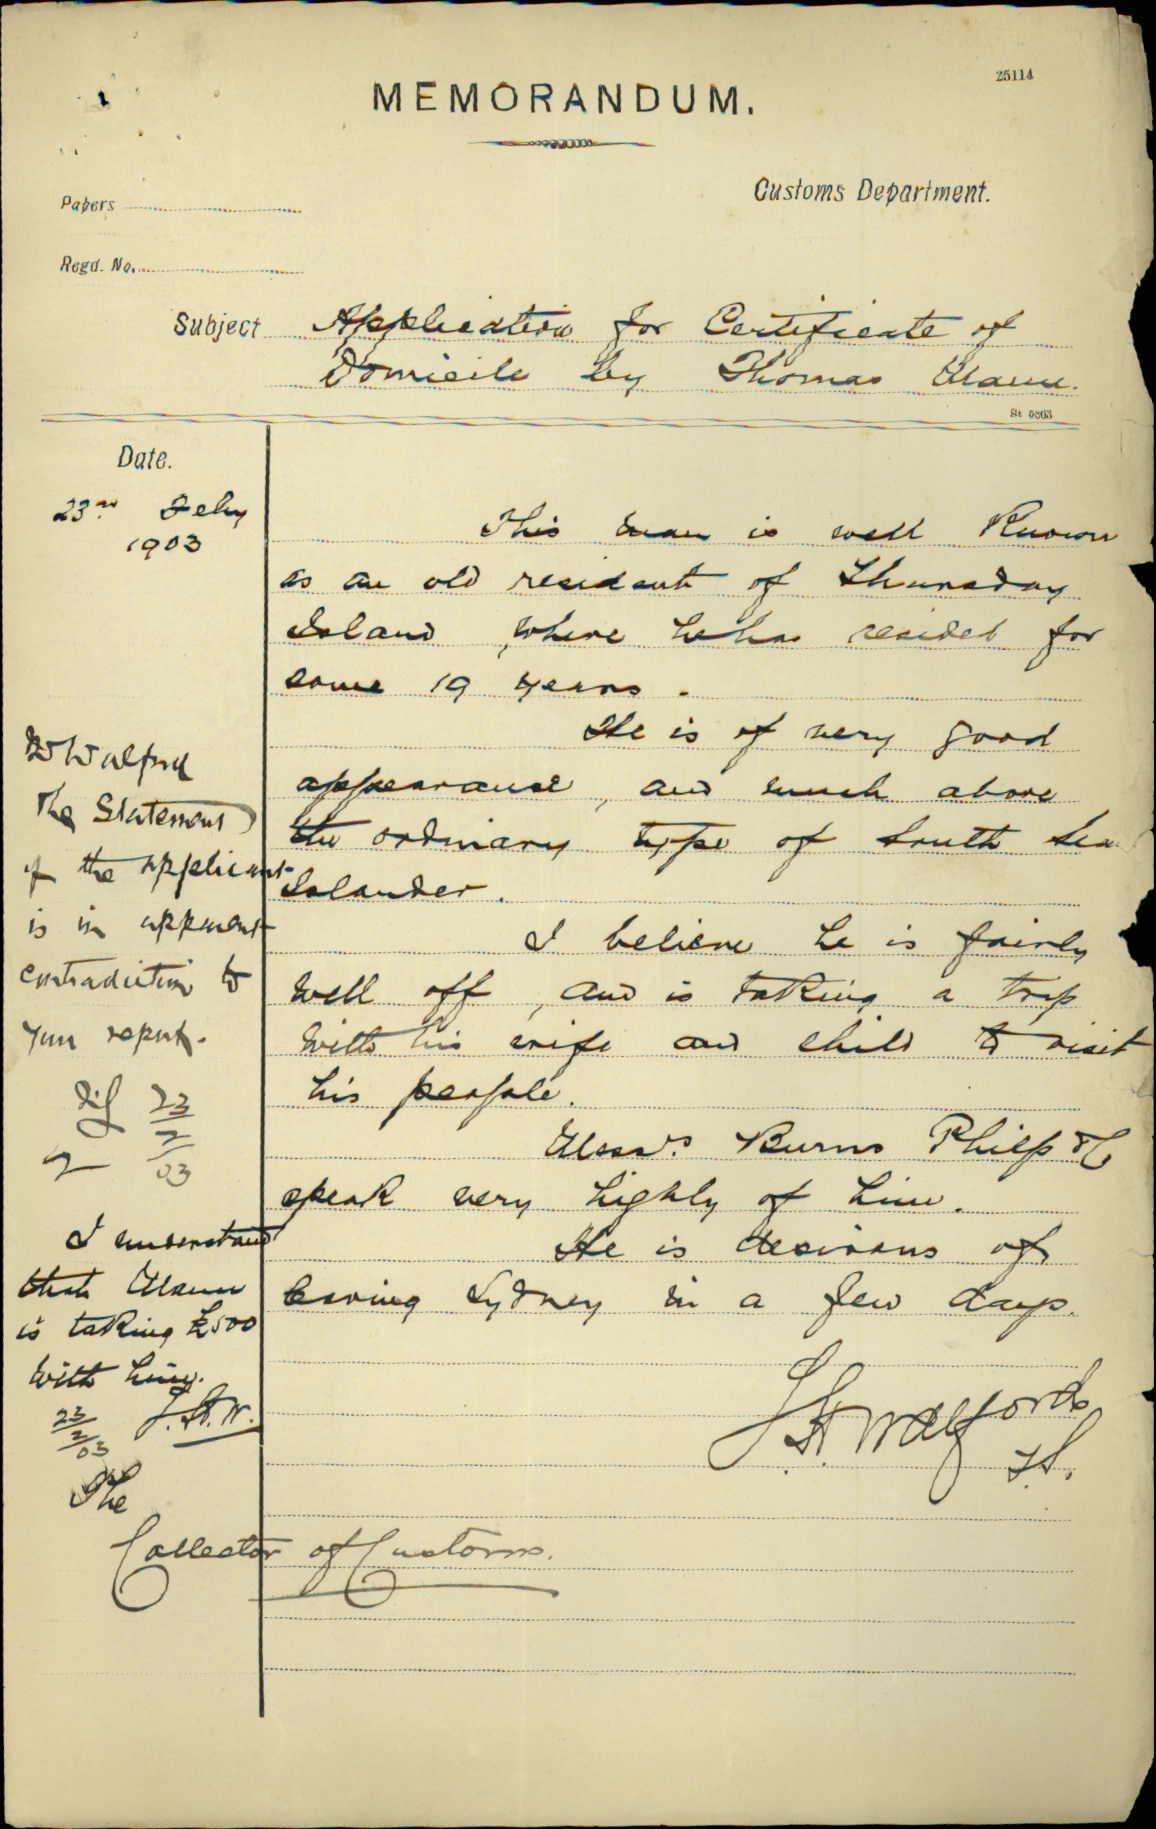 25114
MEMORANDUM.
Customs Department.
Papers
Regd. No.
Subject Application for Certificate of
Domicile by Thomas Mann.
St 6863
Date.
23rd Feby
1903
This man is well Known
as an old resident of Thursday
Island, where he has resided for
some 19 years.
He is of very good
appearance, and much above
the ordinary type of South Sea
Islander.
I believe he is fairly
well off, and is taking a trip
with his wife and child to visit
his people.
Messrs Burns Philp & Co
speak very highly of him.
He is desirous of
leaving Sydney in a few days.
J.H. Walford
The
Collector of Customs.
Mr Walford
The Statement
of the applicant
is in apparent
contradiction to
your report.
23
2
03
I understand
that Mann
is taking £500
with him.
J.H.W.
23
2
03